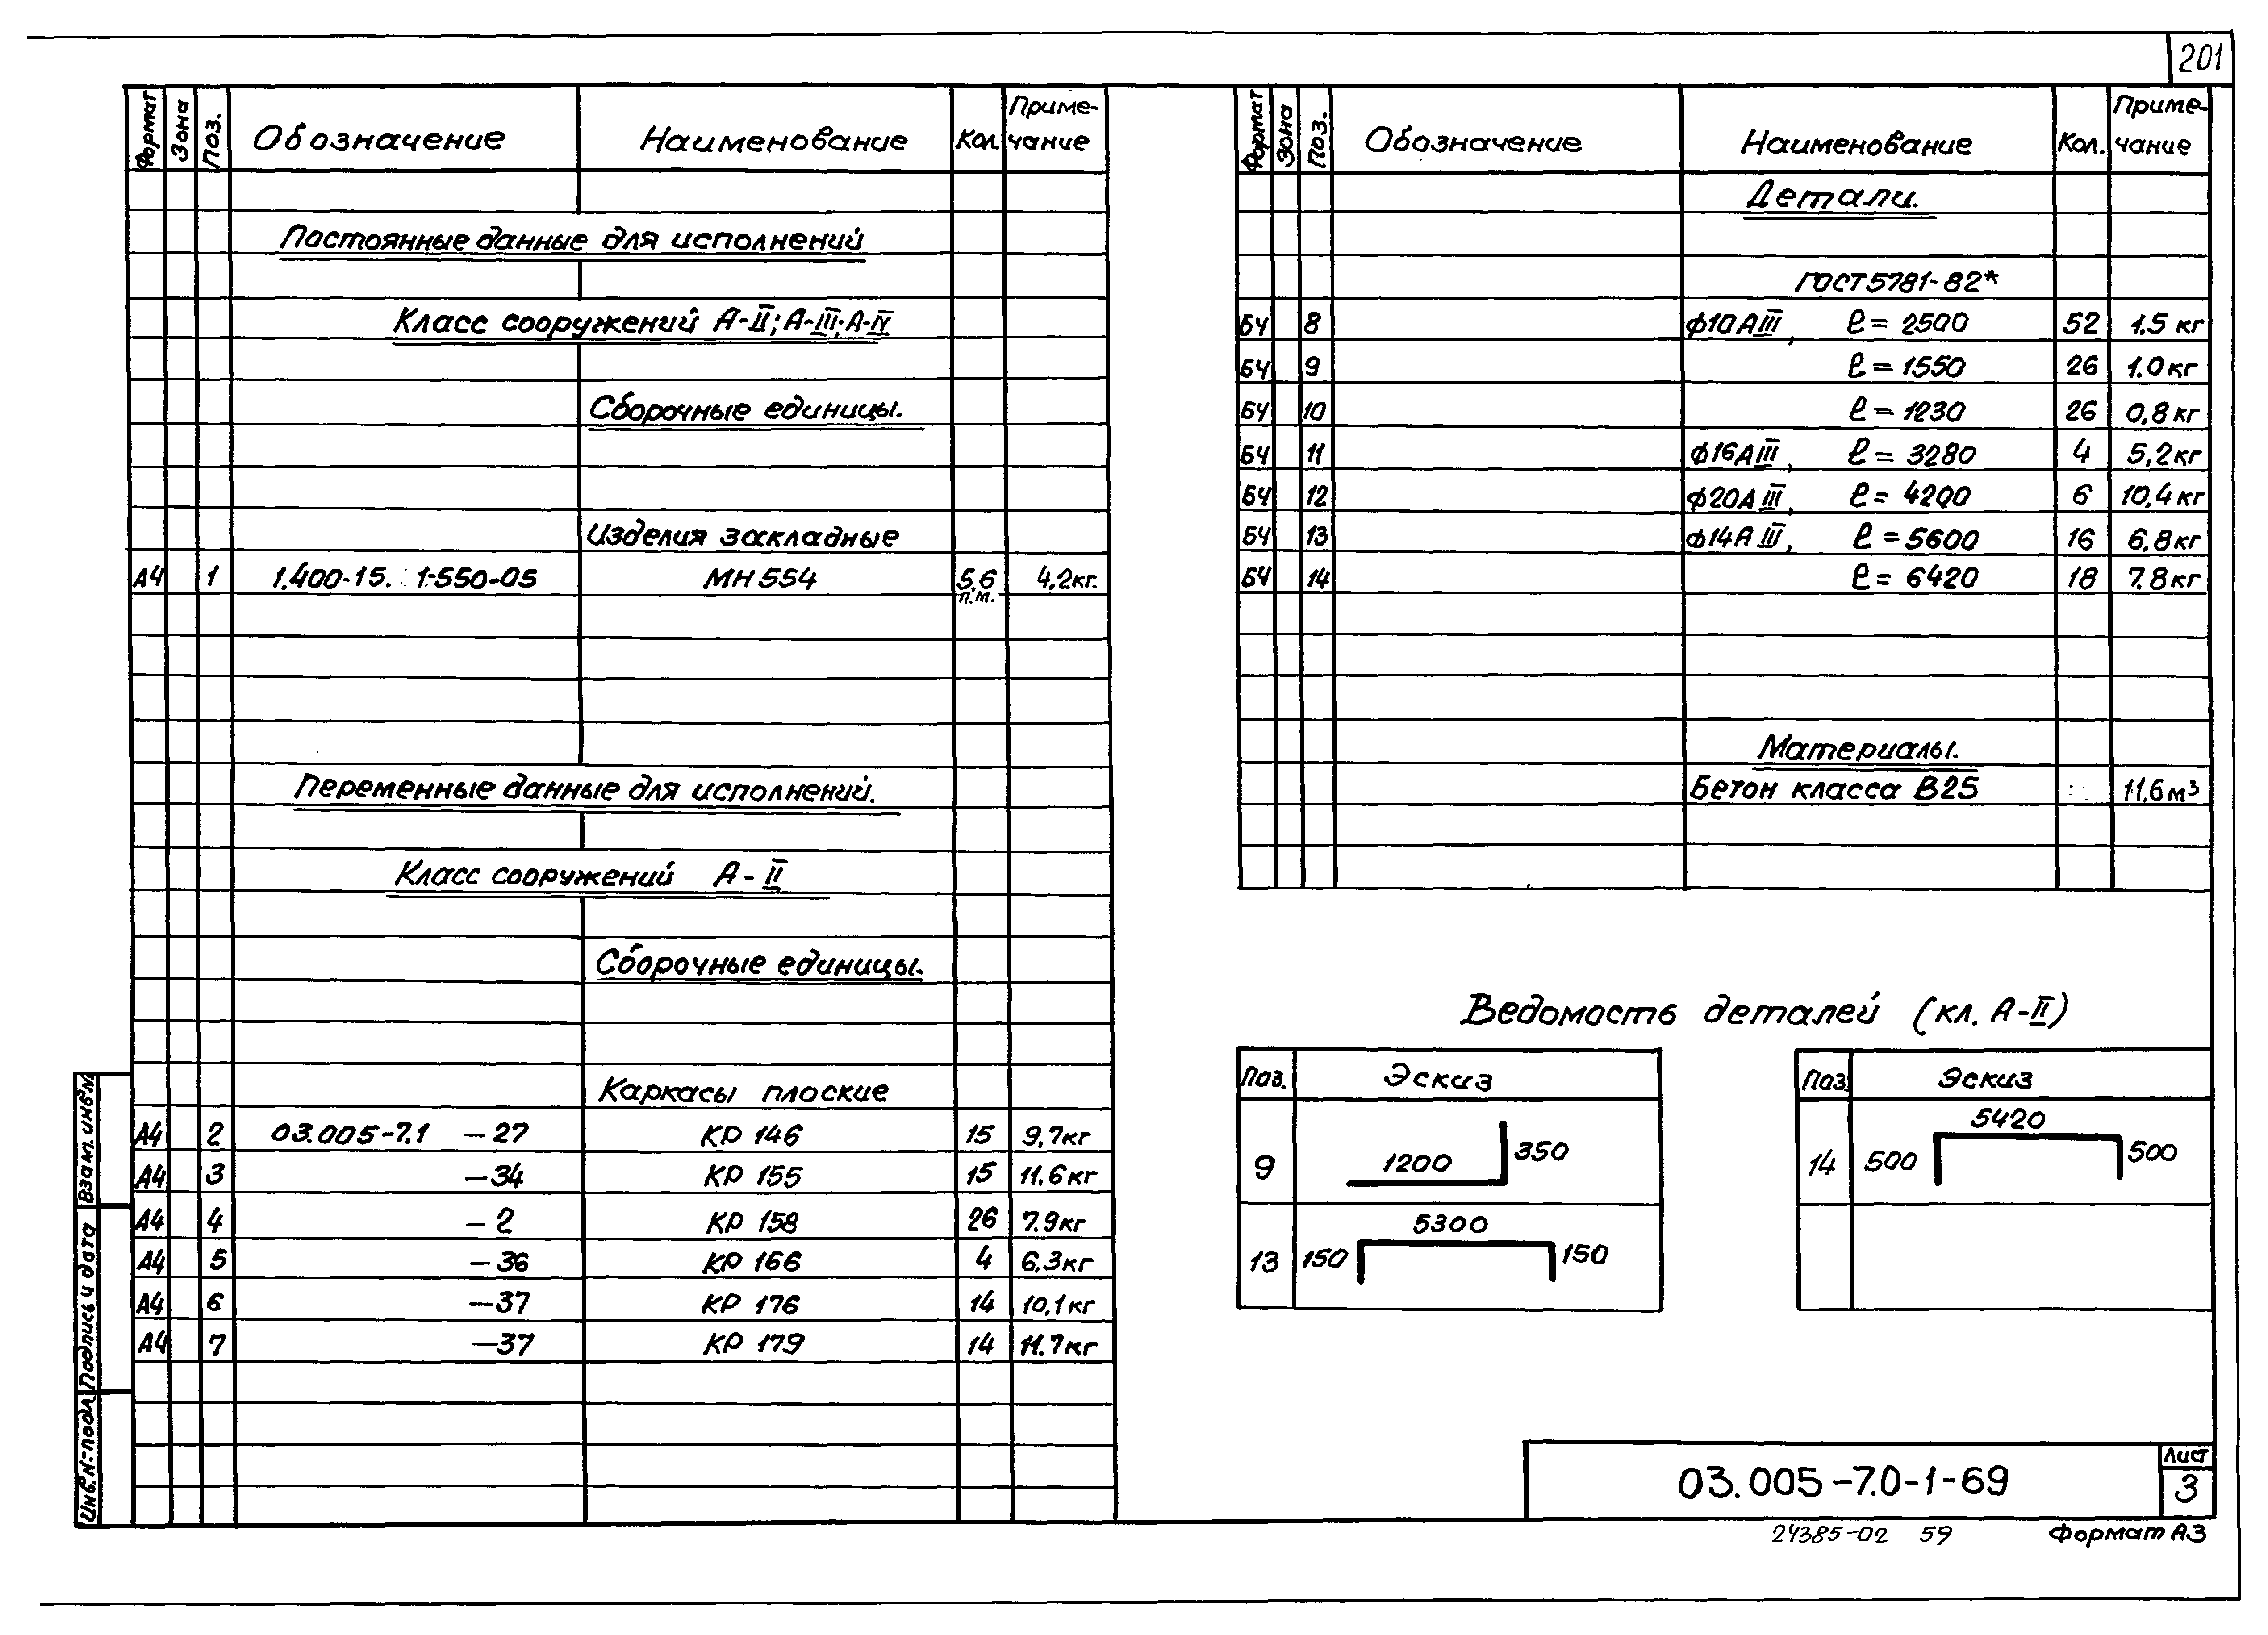 201
Формат Зона Поз. Обозначение Наименование Кол. Приме-
чание
Постоянные данные для исполнений
Класс сооружений А-II; А-III; А-IV
Сборочные единицы.
Изделия закладные
А4 1 1.400-15. 1-550-05 МН 554 5,6 4,2кг.
п.м.
Переменные данные для исполнений.
Класс сооружений А-II
Сборочные единицы.
Каркасы плоские
А4 2 03.005-7.1 -27 КР 146 15 9,7кг
А4 3 -34 КР 155 15 11.6кг
А4 4 -2 КР 158 26 7.9кг
А4 5 -36 КР 166 4 6,3кг
А4 6 -37 КР 176 14 10,1кг
А4 7 -37 КР 179 14 11.7кг
Формат Зона Поз. Обозначение Наименование Кол. Приме-
чание
Детали.
ГОСТ 5781-82*
БЧ 8 ф10АIII, ℓ= 2500 52 1.5 кг
БЧ 9 ℓ= 1550 26 1.0кг
БЧ 10 ℓ= 1230 26 0,8кг
БЧ 11 ф16АIII, ℓ= 3280 4 5,2кг
БЧ 12 ф20АIII, ℓ= 4200 6 10,4кг
БЧ 13 ф14АIII, ℓ= 5600 16 6,8кг
БЧ 14 ℓ= 6420 18 7.8кг
Материалы.
Бетон класса В25 11,6м³
Ведомость деталей (кл. А-II)
Поз. Эскиз
9 1200 350
13 150 5300 150
Поз Эскиз
14 500 5420 500
Взам. инв№
Подпись и дата
Инв.№подл.
03.005-7.0-1-69
Лист
3
24385-02 59
Формат А3